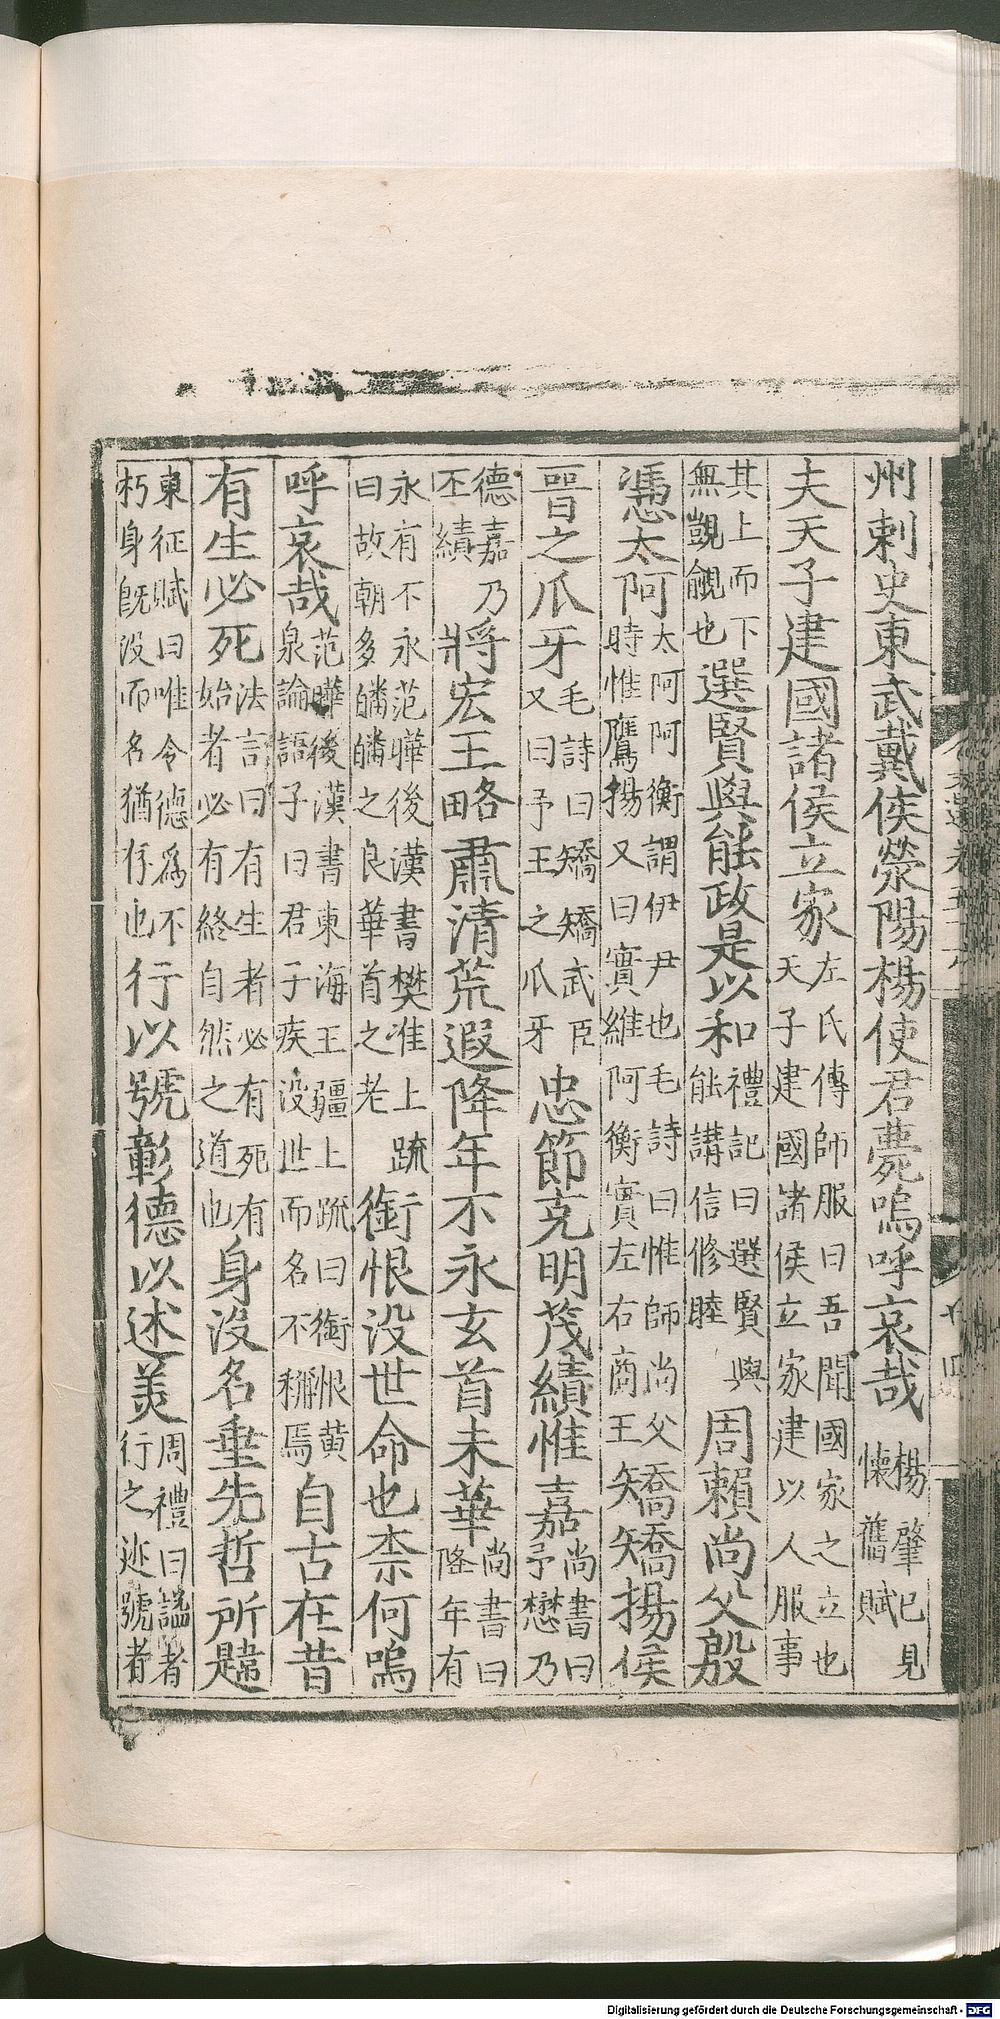 州刺史東武戴侯滎陽楊使君薨嗚呼哀哉楊肇已見懷舊賦
夫天子建國諸侯立家左氏傳師服曰吾聞國家之立也天子建國諸侯立家建以人服事
其上而下無覬覦也選賢與能政是以和禮記曰選賢與能講信修睦周賴尚父殷
憑太阿太阿阿衡謂伊尹也毛詩曰惟師尚父時惟鷹揚又曰實維阿衡實左右商王矯矯揚侯
晉之爪牙毛詩曰矯矯武臣又曰予王之爪牙忠節克明茂績惟嘉尚書曰予懋乃
德嘉乃丕績將宏王略肅清荒遐降年不永玄首未華尚書曰降年有
永有不永范曄後漢書樊准上疏曰故朝多皤皤之良華首之老銜恨没世命也柰何嗚
呼哀哉范曄後漢書東海王疆上疏曰銜恨黄泉論語子曰君子疾没世而名不稱焉自古在昔
有生必死法言曰有生者必有死有始者必有終自然之道也身沒名垂先哲所韙
東征賦曰唯令德爲不朽身旣没而名猶存也行以號彰德以述美周禮曰謚者行之迹號者
Digitalisierung gefördert durch die Deutsche Forschungsgemeinschaft - DFG